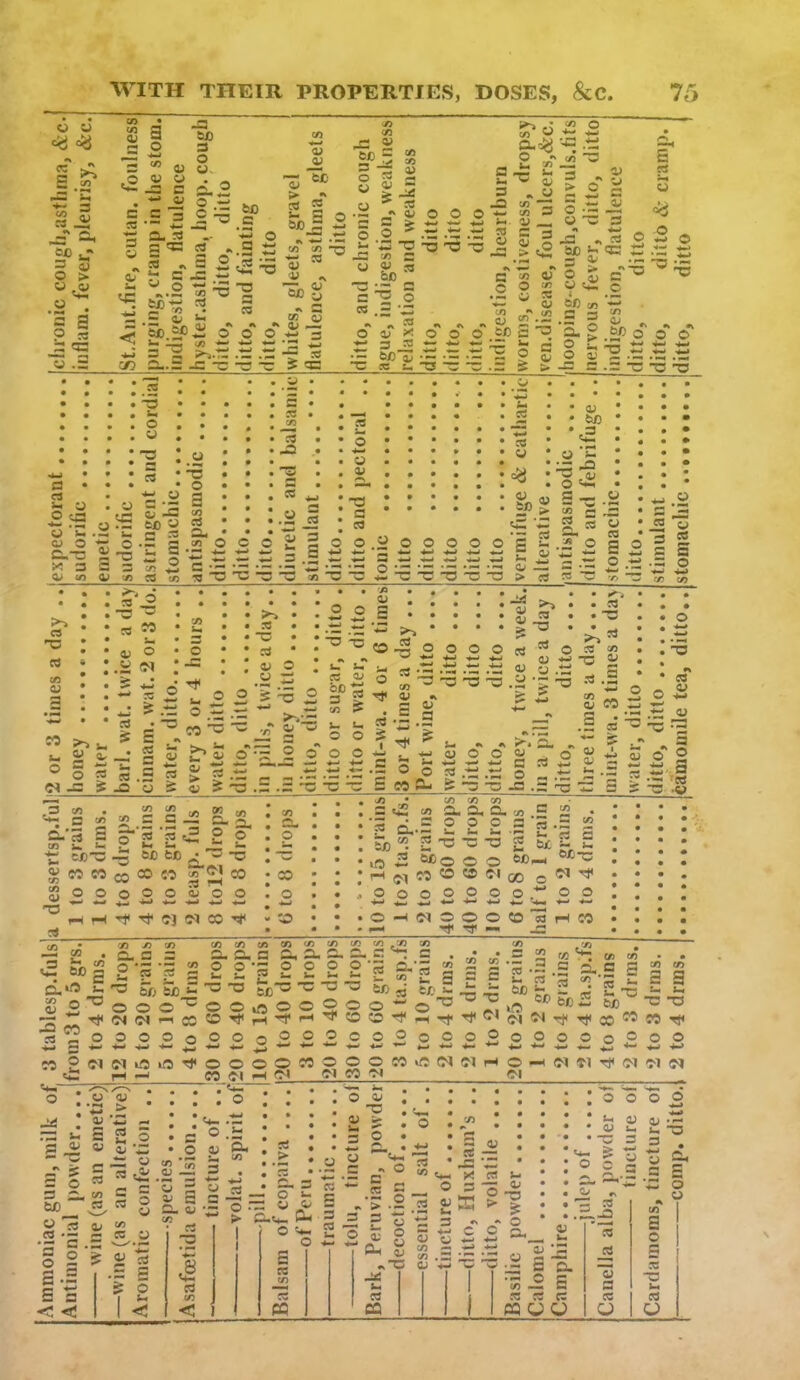 WITH THEIR PROPERTIES, DOSES, &c. 75
Ammoniac gum, milk of 3 tablesp.fuls a dessertsp.ful 2 or 3 times a day .. expectorant ........ chronic cough,asthma, &c.
Antimonial powder.... from 3 to 5 grs. 1 to 3 grains honey ........ sudorific ........ inflam. fever, pleurisy, &c.
—— wine (as an emetic) 2 to 4 drms. 1 to 3 drms. water ........ emetic ........
—wine (as an alterative) 12 to 20 drops 4 to 8 drops barl. wat. twice a day sudorific ........ St.Ant.fire, cutan. foulness
Aromatic confection .. 15 to 20 grains 4 to 8 grains cinnam. wat. 2 or 3 do. astringent and cordial purging, cramp in the stom.
——species ........ 5 to 10 grains 2 to 3 grains water, ditto...... stomachic...... indigestion, flatulence
Asafœtida emulsion.... 4 to 8 drms 2 teasp. fuls every 3 or 4 hours .. antispasmodic ...... hyster.asthma, hoop. cough
—— tincture of .. 30 to 60 drops 8 to12 drops water ditto ...... ditto........ ditto, ditto, ditto
—— volat. spirit of 20 to 40 drops 4 to 8 drops ditto, ditto ...... ditto........ ditto, and fainting
—— pill........ 10 to 15 grains ...... in pills, twice a day.. ditto........ ditto, ditto
Balsam of copaiva .... 20 to 40 drops 6 to 8 drops in honey ditto ...... diuretic and balsamic whites, gleets, gravel
——of Peru ...... 3 to 10 drops ...... ditto, ditto ...... stimulant ...... flatulence, asthma, gleets
——traumatic .... 20 to 40 drops ...... ditto or sugar, ditto ditto........ ditto
—— tolu, tincture of 30 to 60 drops ...... ditto or water, ditto . ditto and pectoral .. ditto, and chronic cough
Bark, Peruvian, powder 20 to 60 grains 10 to 15 grains mint-wa. 4 or 6 times tonic ........ ague, indigestion, weakness
——decoction of.... 3 to 4 ta.sp.fs 1 to2 ta.sp.fs. 3 or 4 times a day ... ditto ........ relaxation and weakness
—— essential salt of .. 5 to 10 grains 2 to 3 grains Port wine, ditto .... ditto ........ ditto, ditto
——tincture of ...... 2 to 4 drms. 40 to 60 drops water ditto .... ditto ........ ditto, ditto
——ditto, Huxham's .. 2 to 4 drms. 40 to 60 drops ditto, ditto .... ditto ........ ditto, ditto
——ditto, volatile .... 1 to 2 drms. 10 to 20 drops ditto, ditto .... ditto ........ indigestion, heartburn
Basilic powder ...... 20 to 25 grains 6 to 8 grains honey, twice a week. vermifuge & cathartic worms, costiveness, dropsy
Calomel ........ 1 to 2 grains half to 1 grain in a pill, twice a day alterative ........ ven.disease, foul ulcers,&c.
Camphire........ 2 to 4 grains 1 to 2 grains. ditto, ditto .... antispasmodic ...... hooping-cough,convuls.fits
——julep of .... 2 to 4 ta.sp.fs 3 to 4 drms. three times a day.... ditto and febrifuge .. nervous fever, ditto, ditto
Canella alba, powder of 4 to 8 grains ...... mint-wa. 3 times a day stomachic........ indigestion, flatulence
—— tincture of 2 to 3 drms. ...... water, ditto ...... ditto........ ditto, ditto
Cardamoms, tincture of 2 to 3 drms. ...... ditto, ditto ...... stimulant ........ ditto, ditto & cramp.
——comp. ditto. 2 to 4 drms. ...... camomile tea, ditto.. stomachic ........ ditto, ditto